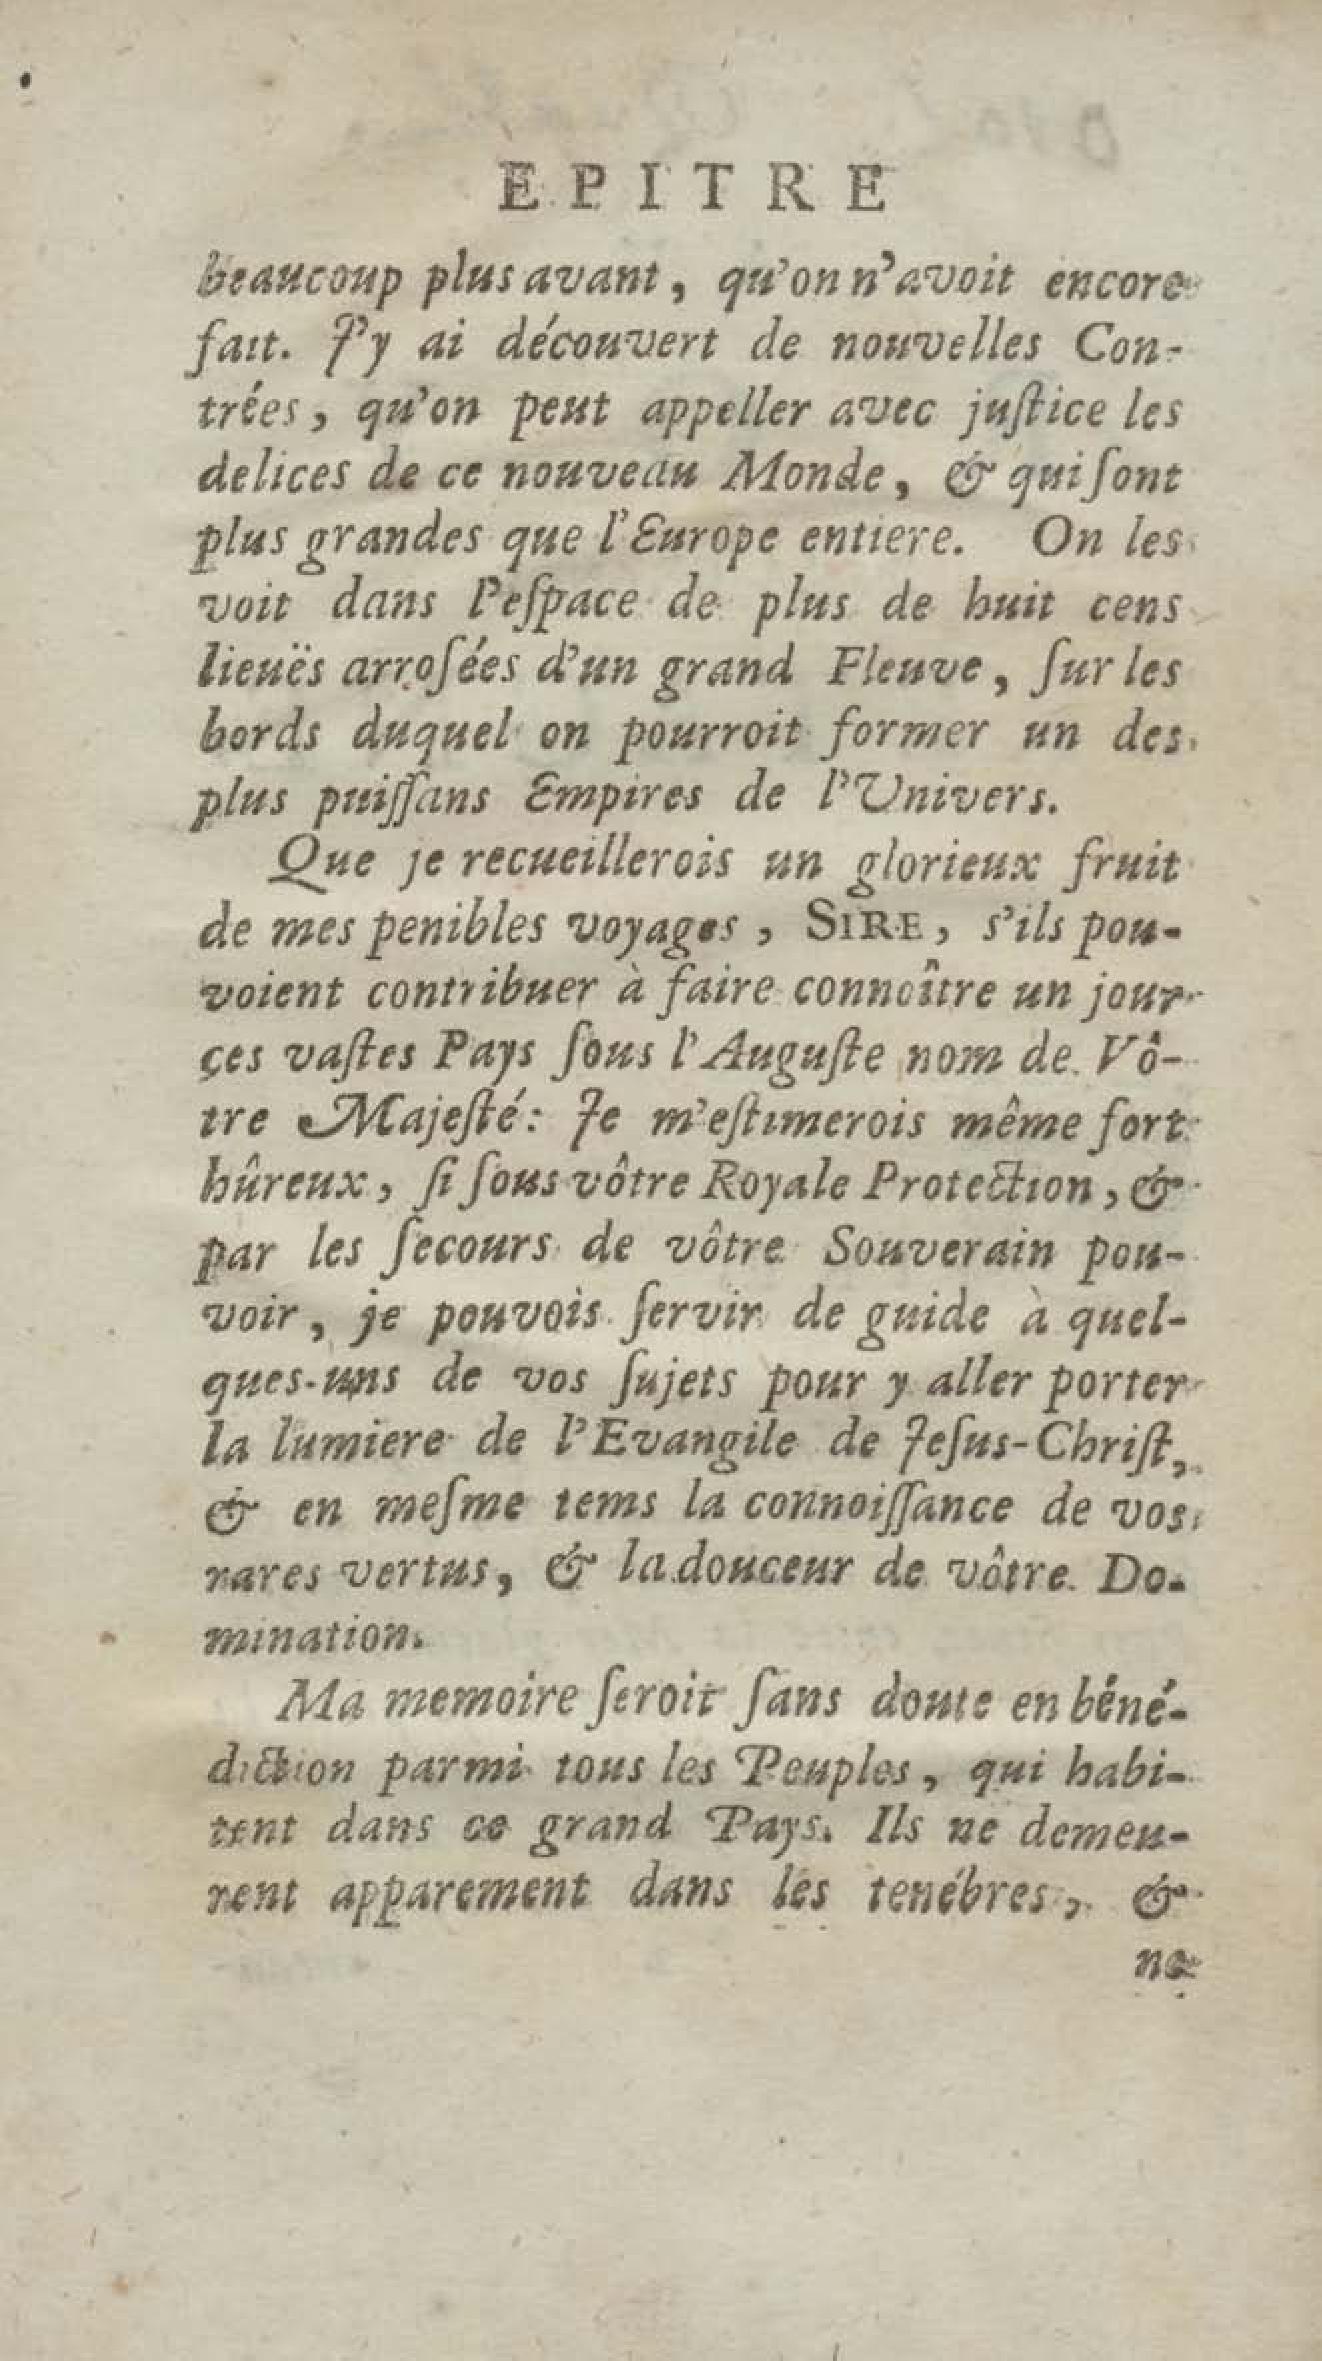 EPITRE
beaucoup plus avant, qu'on n'avoit encore
fait. J'y ai découvert de nouvelles Con-
trées, qu'on peut appeller avec juſtice les
delices de ce nouveau Monde, & qui ſont
plus grandes que l'Europe entiere. On les
voit dans l'eſpace de plus de huit cens
lieuës arroſées d'un grand Fleuve, ſur les
bords duquel on pourroit former un des
plus puiſſans Empires de l'Univers.
Que je recueillerois un glorieux fruit
de mes penibles voyages, SIRE, s'ils pou-
voient contribuer à faire connoître un jour
ces vaſtes Pays ſous l'Auguſte nom de Vô-
tre Majeſté: Je m'eſtimerois même fort
hûreux, ſi ſous vôtre Royale Protection, &
par les ſecours de vôtre Souverain pou-
voir, je pouvois ſervir de guide à quel-
ques-uns de vos ſujets pour y aller porter
la lumiere de l'Evangile de Jeſus-Chriſt,
& en meſme tems la connoiſſance de vos
rares vertus, & la douceur de vôtre Do-
mination.
Ma memoire ſeroit ſans doute en béné-
diction parmi tous les Peuples, qui habi-
tent dans ce grand Pays. Ils ne demeu-
rent apparement dans les tenébres, &
ne